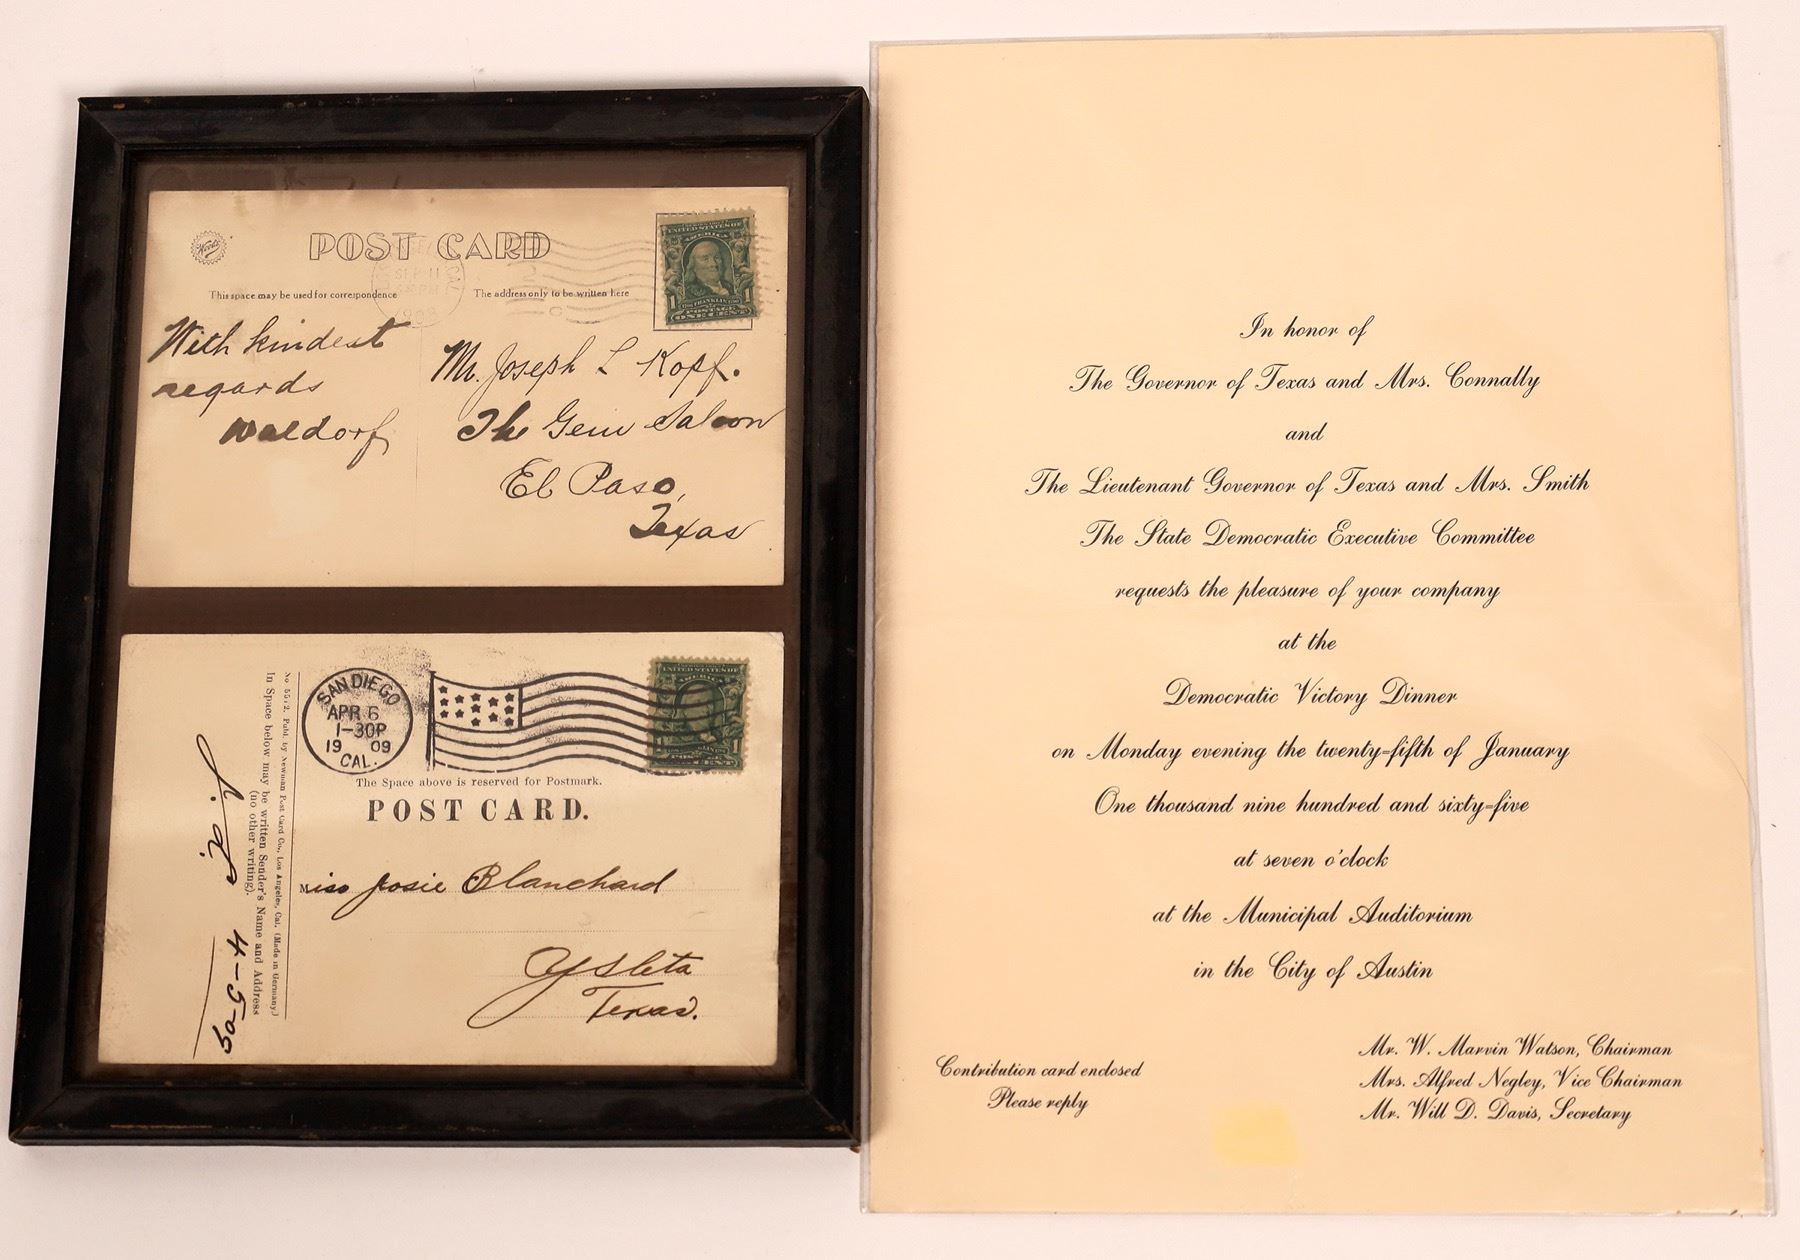 Woods
POST CARD
SEP 11
CAL
This space may be used for correspondence
The address only to be written here
UNITED STATES OF
AMERICA
1 FRANKLIN 1
POSTAGE
ONE CENT
With kindest
regards
Waldorf
Mr. Joseph L Kopf.
The Gem Saloon
El Paso,
Texas
No 5572. Publ. by Newman Post Card Co., Los Angeles, Cal. (Made in Germany.)
In Space below may be written Sender's Name and Address
(no other writing).
4-5-09
SAN DIEGO
APR 6
1-30P
19 09
CAL.
UNITED STATES OF
AMERICA
The Space above is reserved for Postmark.
POST CARD.
Miss Josie Blanchard
Ysleta
Texas.
In honor of
The Governor of Texas and Mrs. Connally
and
The Lieutenant Governor of Texas and Mrs. Smith
The State Democratic Executive Committee
requests the pleasure of your company
at the
Democratic Victory Dinner
on Monday evening the twenty-fifth of January
One thousand nine hundred and sixty-five
at seven o'clock
at the Municipal Auditorium
in the City of Austin
Contribution card enclosed
Please reply
Mr. W. Marvin Watson, Chairman
Mrs. Alfred Negley, Vice Chairman
Mr. Will D. Davis, Secretary